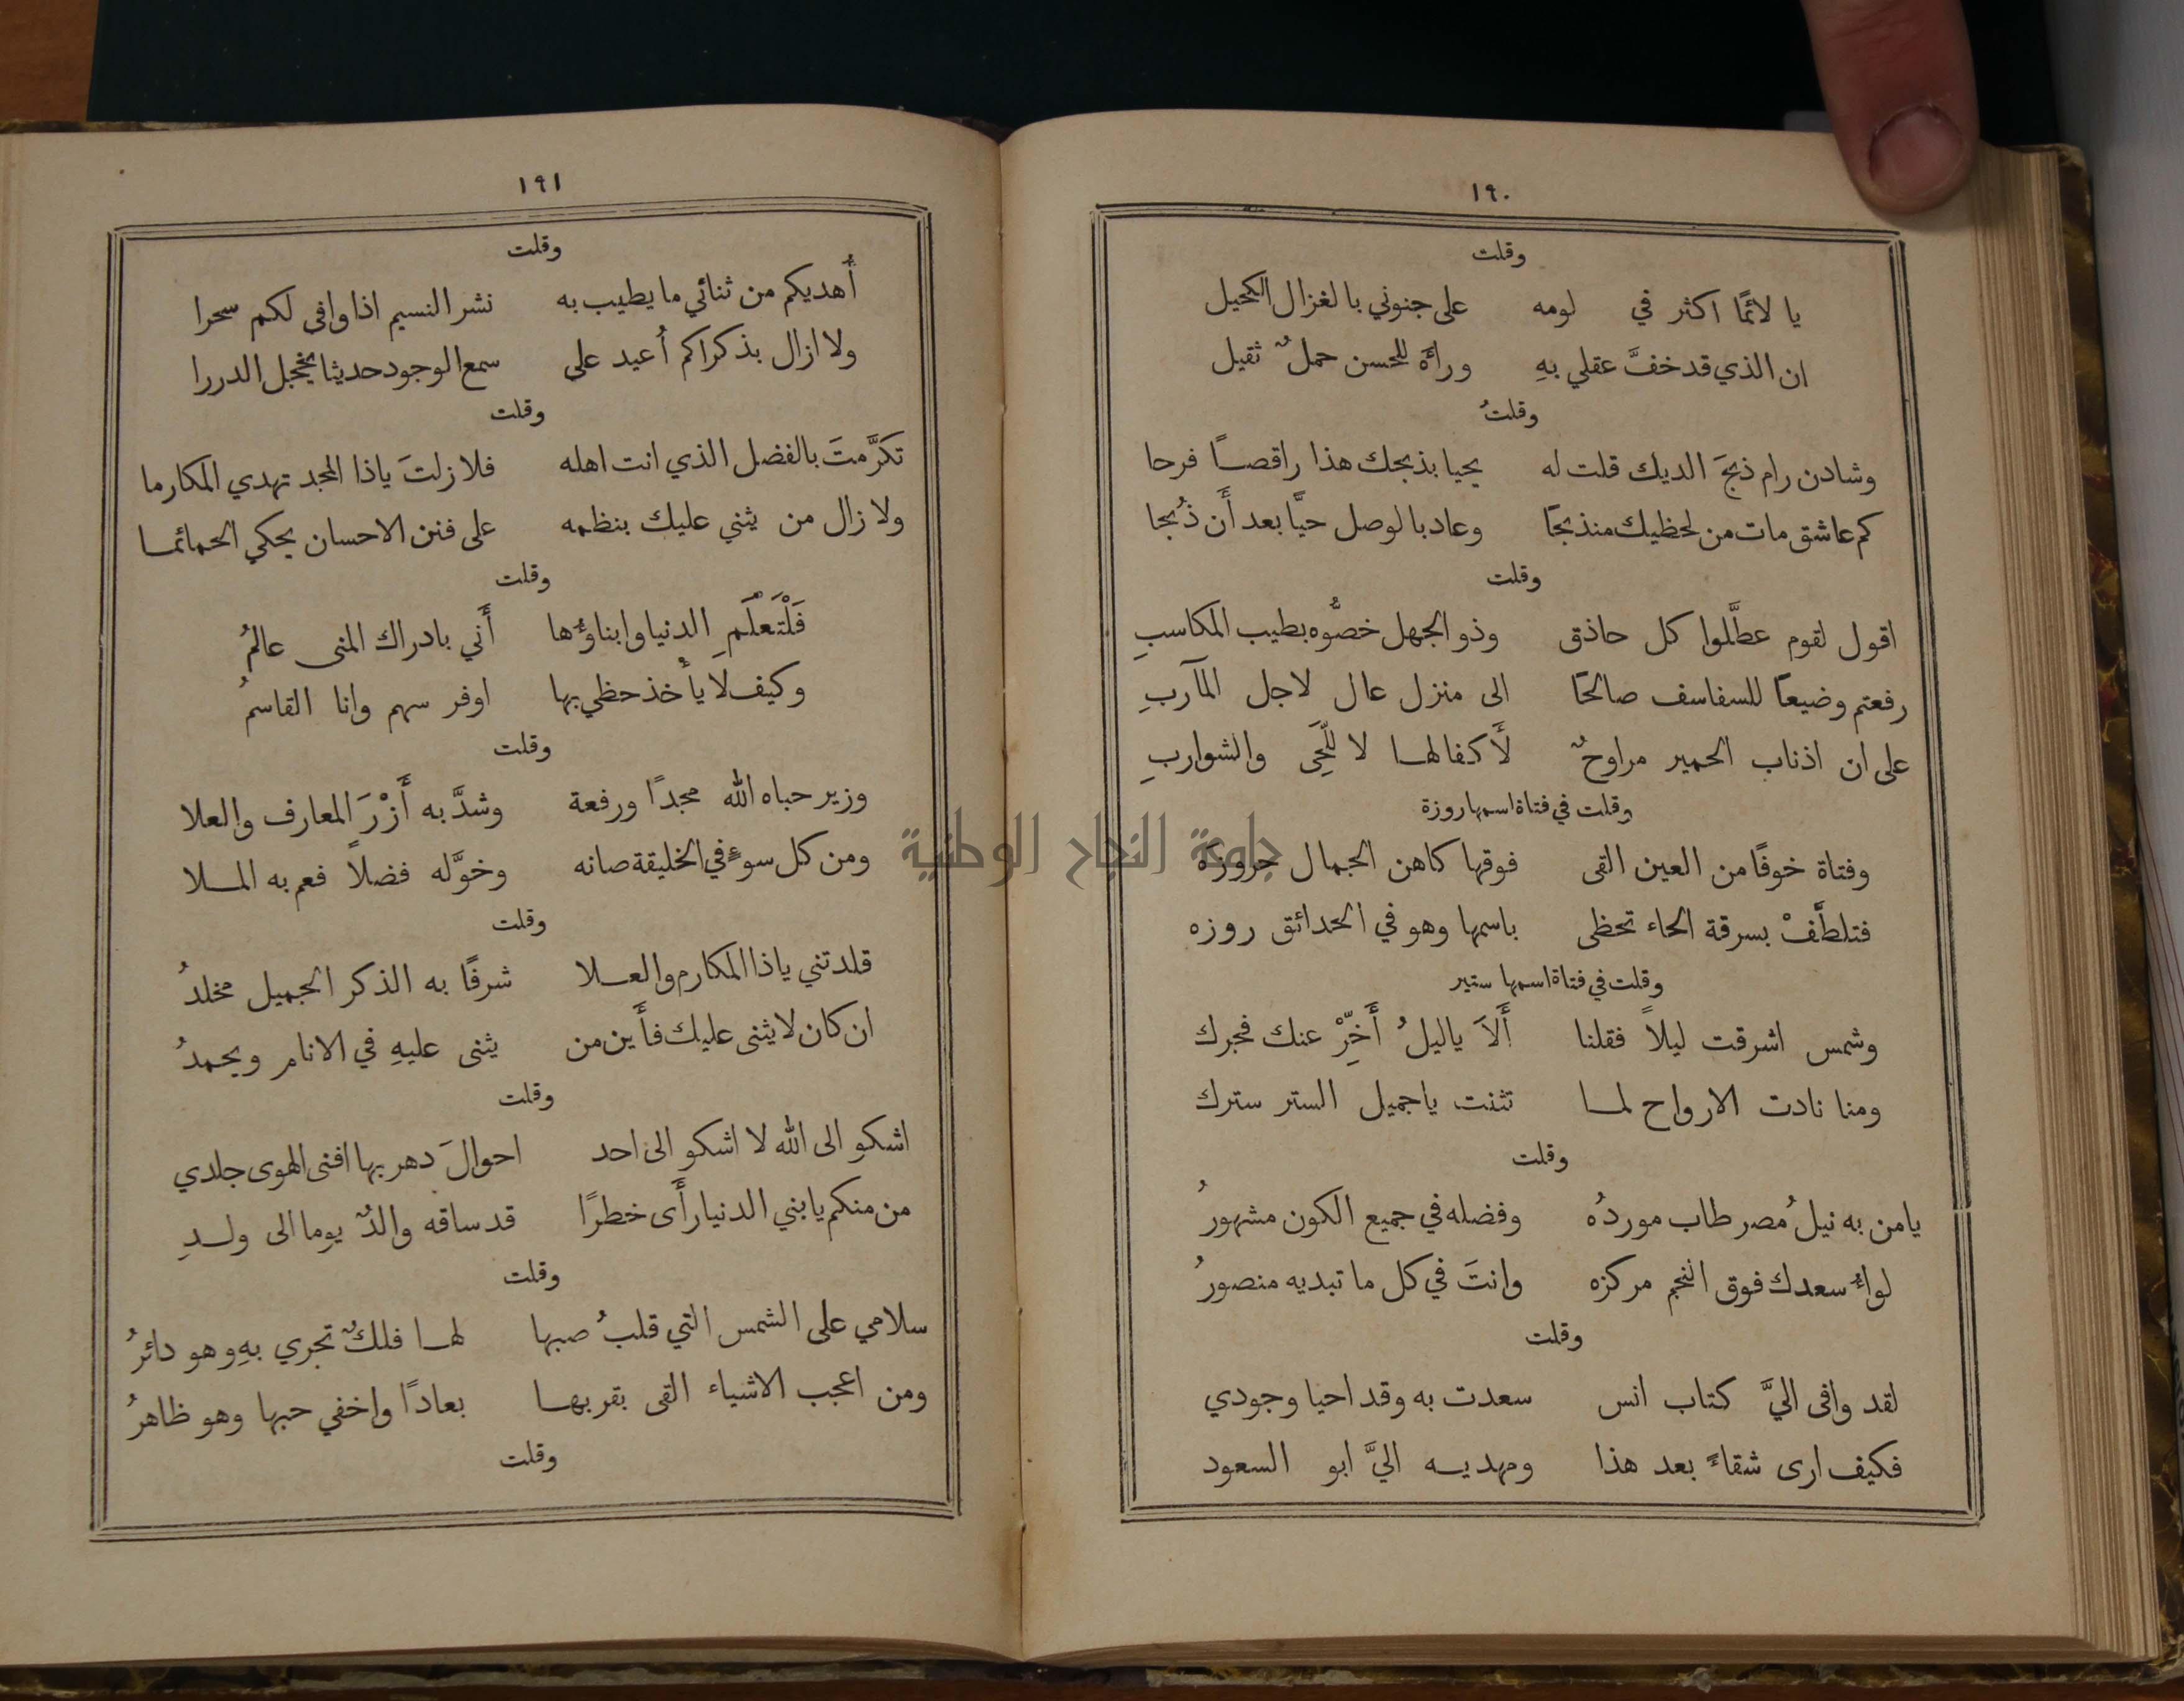 ١٩٠
وقلت
يا لائمًا اكثر في لومه على جنوني بالغزال الكحيل
ان الذي قد خفَّ عقلي بهِ ورآهَ للحسن حملٌ ثقيل
وقلتُ
وشادن رام ذبحَ الديك قلت له يحيا بذبحك هذا راقصاً فرحا
كم عاشق مات من لحظيك منذبحًا وعاد بالوصل حيًّا بعد أَن ذُبحا
وقلت
اقول لقوم عطَّلوا كل حاذق وذو الجهل خصُّوه بطيب المكاسبِ
رفعتم وضيعًا للسفاسف صالحًا الى منزل عال لاجل المآربِ
على ان اذناب الحمير مراوحٌ لأَكفالها لا للِّحَى والشواربِ
وقلت في فتاة اسمها روزة
وفتاة خوفًا من العين القى فوقها كاهن الجمال حروزه
فتلطَّفْ بسرقة الحاء تحظى باسمها وهو في الحدائق روزه
وقلت في فتاة اسمها ستير
وشمس اشرقت ليلاً فقلنا أَلاَ ياليلُ أَخِّرْ عنك فجرك
ومنا نادت الارواح لما تثنت ياجميل الستر سترك
وقلت
يامن به نيلُ مصر طاب موردُه وفضله في جميع الكون مشهورُ
لواءُ سعدك فوق النجم مركزه وانتَ في كل ما تبديه منصورُ
وقلت
لقد وافى اليَّ كتاب انس سعدت به وقد احيا وجودي
فكيف ارى شقاءً بعد هذا ومهديه اليَّ ابو السعود
١٩١
وقلت
أُهديكم من ثنائي ما يطيب به نشر النسيم اذا وافى لكم سحرا
ولا ازال بذكراكم أُعيد على سمع الوجود حديثا يخجل الدررا
وقلت
تكرَّمتَ بالفضل الذي انت اهله فلا زلتَ ياذا المجد تهدي المكارما
ولا زال من يثني عليك بنظمه على فنن الاحسان يحكي الحمائما
وقلت
فَلْتَعْلَمِ الدنيا وابناؤُها أَني بادراك المنى عالمُ
وكيف لا يأْخذ حظي بها اوفر سهم وانا القاسمُ
وقلت
وزير حباه الله مجدًا ورفعة وشدَّ به أَزْرَ المعارف والعلا
ومن كل سوءٍ في الخليقة صانه وخوَّله فضلاً فعم به الملا
وقلت
قلدتني ياذا المكارم والعلا شرفًا به الذكر الجميل مخلدُ
ان كان لا يثنى عليك فأَين من يثنى عليهِ في الانام ويحمدُ
وقلت
اشكو الى الله لا اشكو الى احد احوالَ دهر بها افنى الهوى جلدي
من منكم يابني الدنيا رأَى خطرًا قد ساقه والدٌ يوما الى ولدِ
وقلت
سلامي على الشمس التي قلبُ صبها لها فلكٌ تجري بهِ وهو دائرُ
ومن اعجب الاشياء القى بقربها بعادًا واخفي حبها وهو ظاهرُ
وقلت
جامعة النجاح الوطنية